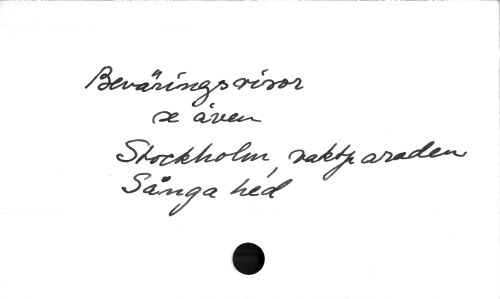 Beväringsvisor
se även
Stockholm, vaktparaden
Sånga hed